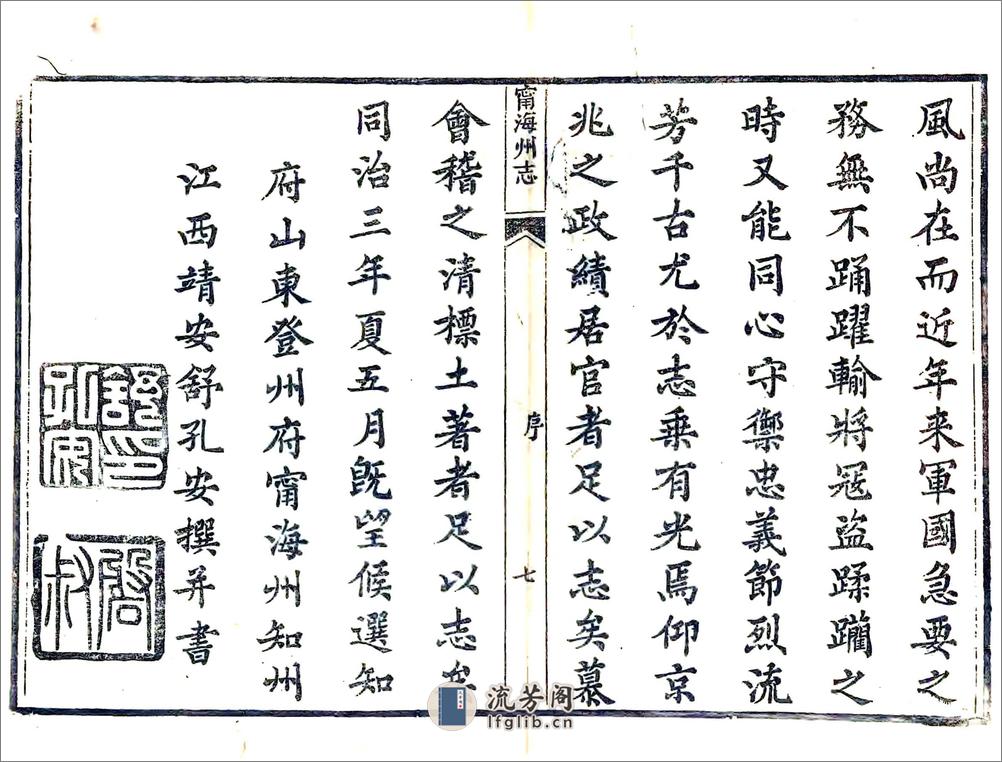 風尚在而近年来軍國急要之
務無不踊躍輸將寇盜蹂躪之
時又能同心守禦忠義節烈流
芳千古尤於志乗有光焉仰京
兆之政績居官者足以志矣慕
甯海州志
序
七
會稽之清標土著者足以志矣
同治三年夏五月旣望候選知
府山東登州府甯海州知州
江西靖安舒孔安撰并書
舒孔安印
流芳阁
lfglib.cn